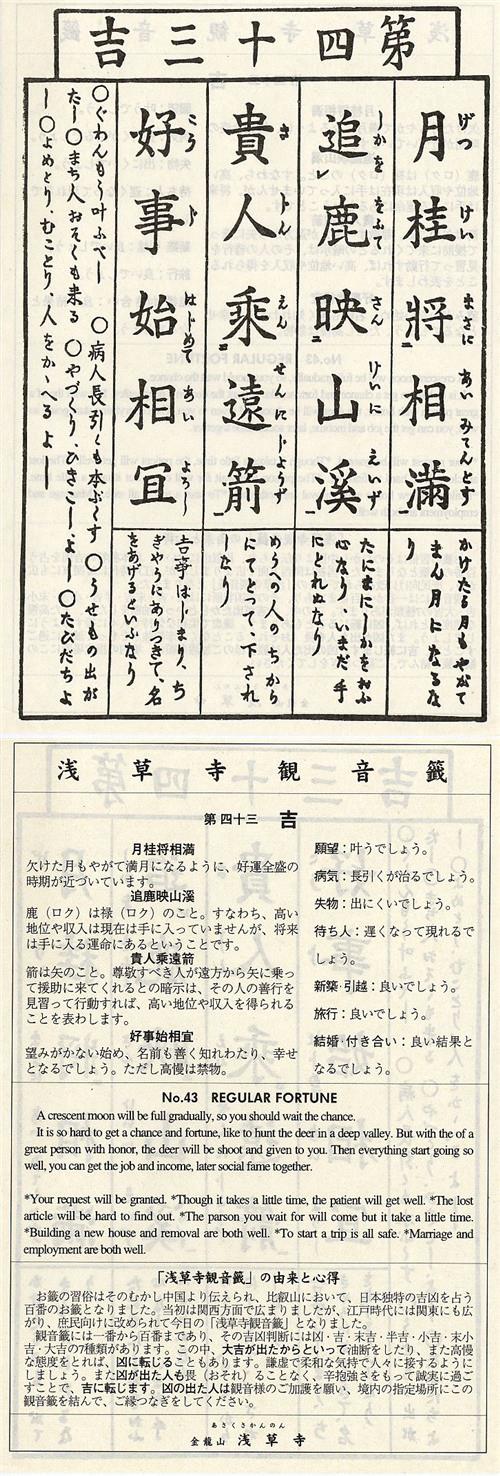 第四十三吉
月桂將相滿
げつ けい まさに あい みてんとす
追鹿映山溪
しかををふて さん けいに えいず
貴人乘遠箭
きじん えん せんにじようず
好事始相宜
こうじ はじめて あい よろし
かけたる月もやがて
まん月になるな
り
たにまにしかをおふ
心なり、いまだ手
にとれぬなり
めうへの人のちから
にてとつて下され
しなり
吉事はじまり、ち
ぎやうにありつきて、名
をあげるといふなり
〇ぐわんもう叶ふべし 〇病人長引くも本ぷくす 〇うせもの出が
たし〇まち人おそくも来る 〇やづくり、ひきこしよし 〇たびだちよ
し〇よめとり、むことり人をかゝへるよし
浅草寺観音籤
第四十三 吉
月桂将相満
欠けた月もやがて満月になるように、好運全盛の
時期が近づいています。
追鹿映山渓
鹿（ロク）は禄（ロク）のこと。すなわち、高い
地位や収入は現在は手に入っていませんが、将来
は手に入る運命にあるということです。
貴人乗遠箭
箭は矢のこと。尊敬すべき人が遠方から矢に乗っ
て援助に来てくれるとの暗示は、その人の善行を
見習って行動すれば、高い地位や収入を得られる
ことを表わします。
好事始相宜
望みがかない始め、名前も善く知れわたり、幸せ
となるでしょう。ただし高慢は禁物。
願望：叶うでしょう。
病気：長引くが治るでしょう。
失物：出にくいでしょう。
待ち人：遅くなって現れるで
しょう。
新築·引越：良いでしょう。
旅行：良いでしょう。
結婚·付き合い：良い結果と
なるでしょう。
No.43 REGULAR FORTUNE
A crescent moon will be full gradually, so you should wait the chance.
It is so hard to get a chance and fortune, like to hunt the deer in a deep valley. But with the of a
great person with honor, the deer will be shoot and given to you. Then everything start going so
well, you can get the job and income, later social fame together.
*Your request will be granted. *Though it takes a little time, the patient will get well. *The lost
article will be hard to find out. *The parson you wait for will come but it take a little time.
*Building a new house and removal are both well. *To start a trip is all safe. *Marriage and
employment are both well.
「浅草寺観音籤」の由来と心得
お籤の習俗はそのむかし中国より伝えられ、比叡山において、日本独特の吉凶を占う
百番のお籤となりました。当初は関西方面で広まりましたが、江戸時代には関東にも広
がり、庶民向けに改められて今日の「浅草寺観音籤」となりました。
観音籤には一番から百番まであり、その吉凶判断には凶·吉·末吉·半吉·小吉·末小
吉·大吉の7種類があります。この中、大吉が出たからといって油断をしたり、また高慢
な態度をとれば、凶に転じることもあります。謙虚で柔和な気持で人々に接するように
しましょう。また凶が出た人も畏（おそれ）ることなく、辛抱強さをもって誠実に過ご
すことで、吉に転じます。凶の出た人は観音様のご加護を願い、境内の指定場所にこの
観音籤を結んで、ご縁つなぎをしてください。
あさくさかんのん
金龍山 浅草寺